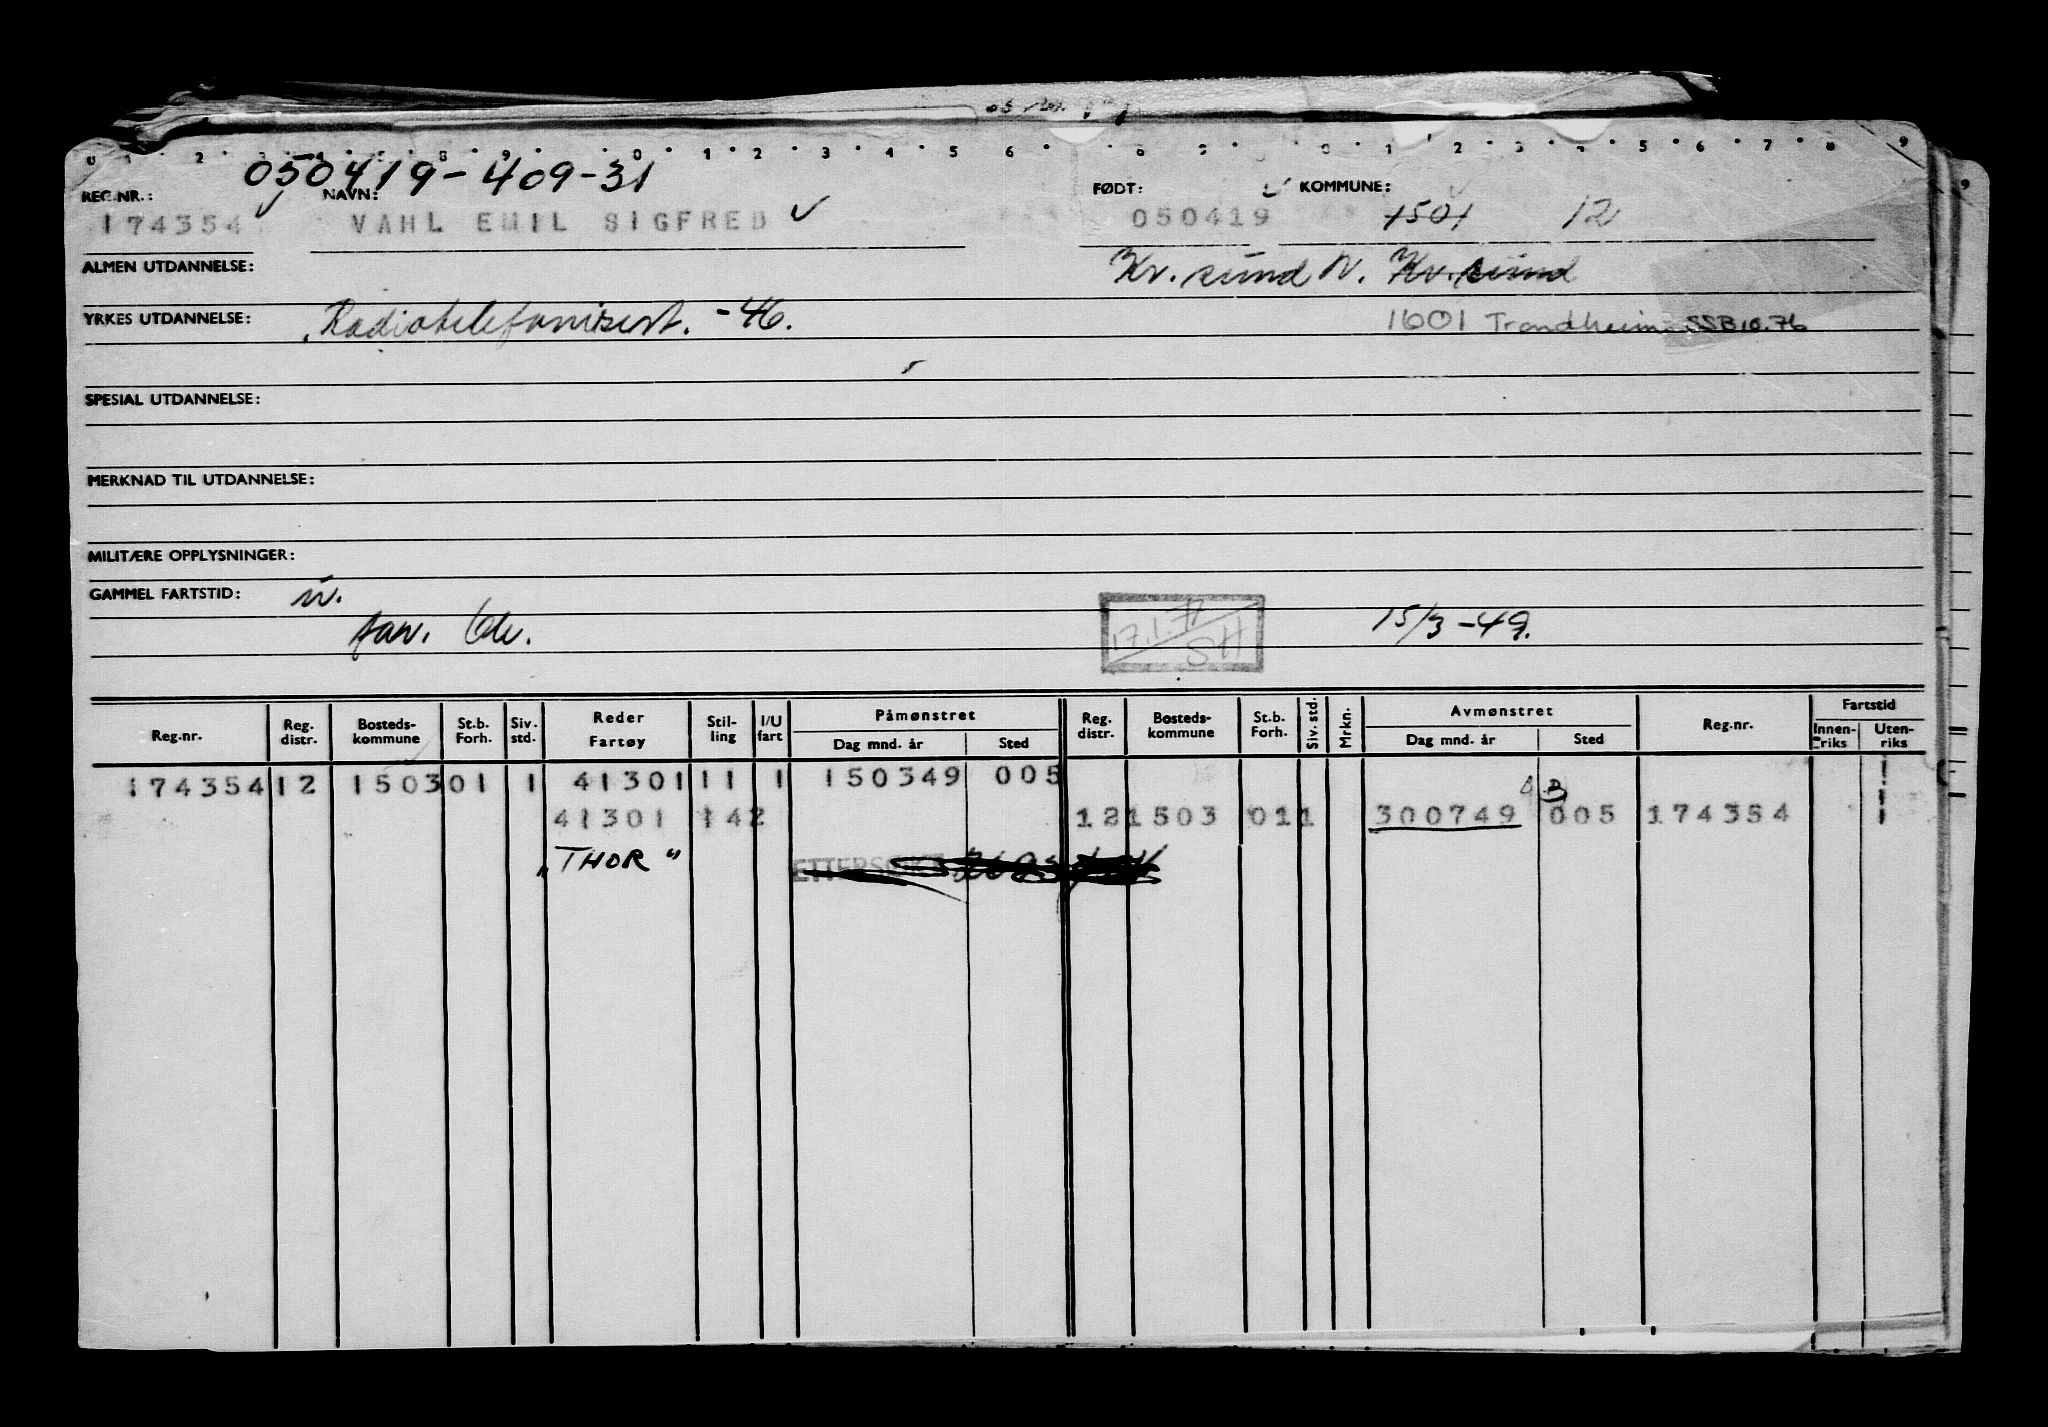 050419-409-31
REG.NR.: NAVN: FØDT: KOMMUNE:
174354 VAHL EMIL SIGFRED 050419 1501 12
ALMEN UTDANNELSE: Kr. sund N. Kr. sund
YRKES UTDANNELSE: Radiotelefonisert. -46. 1601 Trondheim SSB 10.76
SPESIAL UTDANNELSE:
MERKNAD TIL UTDANNELSE:
MILITÆRE OPPLYSNINGER:
GAMMEL FARTSTID:
17.1.77 SH
15/3-49.
Reg.nr. Reg. distr. Bosteds-kommune St.b. Forh. Siv. std. Reder Fartøy Stil-ling I/U fart Påmønstret Dag mnd. år Sted Reg. distr. Bosteds-kommune St.b. Forh. Siv. std. Mrkn. Avmønstret Dag mnd. år Sted Reg.nr. Fartstid Innen-riks Uten-riks
174354 12 1503 01 1 41301 11 1 150349 005
41301 142 12 1503 01 1 300749 005 174354
"THOR"